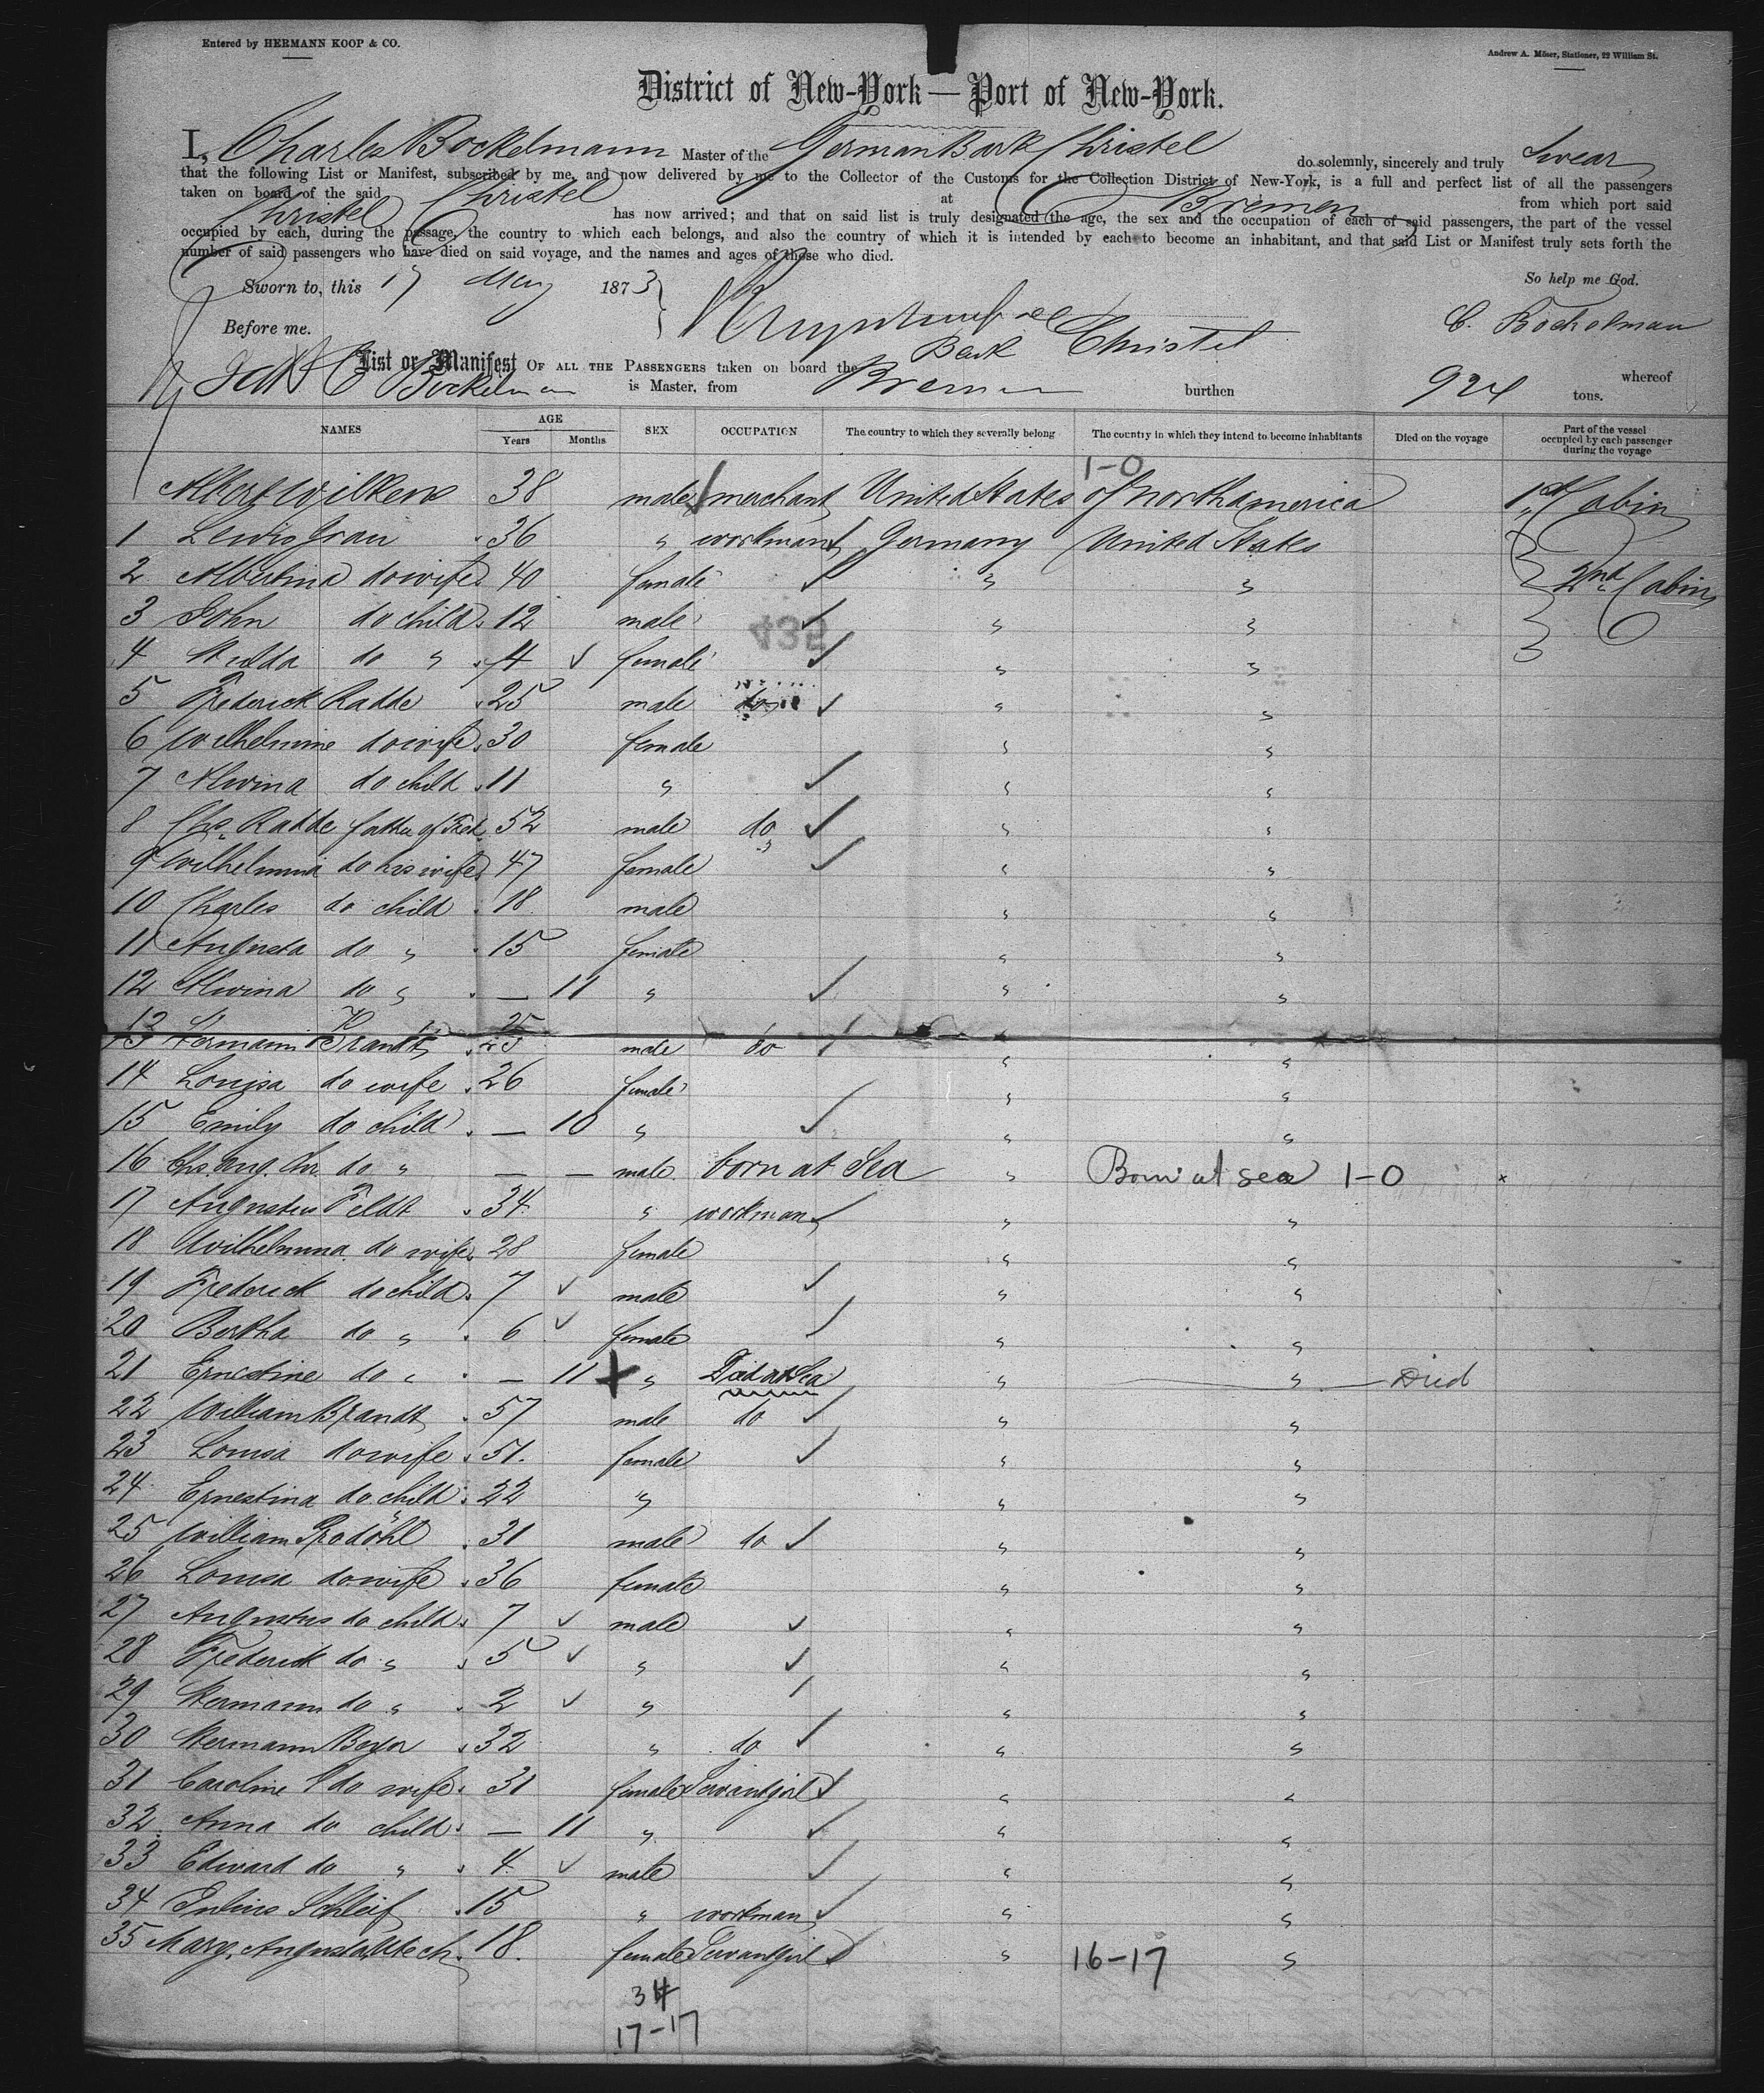 Entered by HERMANN KOOP & CO.
Andrew A. Möser, Stationer, 22 William St.
District of New-York — Port of New-York.
I, Charles Bockelmann Master of the German Bark Christel do solemnly, sincerely and truly Swear
that the following List or Manifest, subscribed by me, and now delivered by me to the Collector of the Customs for the Collection District of New-York, is a full and perfect list of all the passengers
taken on board of the said Christel at Bremen from which port said
Christel has now arrived; and that on said list is truly designated the age, the sex and the occupation of each of said passengers, the part of the vessel
occupied by each, during the passage, the country to which each belongs, and also the country of which it is intended by each to become an inhabitant, and that said List or Manifest truly sets forth the
number of said passengers who have died on said voyage, and the names and ages of those who died.
So help me God.
Sworn to, this 17 May 1873
C. Bockelmann
Before me.
List or Manifest OF ALL THE PASSENGERS taken on board the Bark Christel whereof
C Bockelman is Master, from Bremen burthen 924 tons.
NAMES AGE Years Months SEX OCCUPATION The country to which they severally belong The country in which they intend to become inhabitants Died on the voyage Part of the vessel occupied by each passenger during the voyage
1-0
Albert Wilkens 38 male merchant United States of North America 1st Cabin
1 Lewis Grau 36 " workman Germany United States
2 Albertina do wife 40 female " " 2nd Cabin
3 John do child 12 male " "
435
4 Hulda do " 4 female " "
5 Frederick Radde 25 male do " "
6 Wilhelmine do wife 30 female " "
7 Alwina do child 11 " " "
8 Chs. Radde father of Fred. 52 male do " "
9 Wilhelmina do his wife 47 female " "
10 Charles do child 18 male " "
11 Augusta do " 15 female " "
12 Alwina do " — 11 " " "
13 Hermann Brandt 25 male do " "
14 Louisa do wife 26 female " "
15 Emily do child — 10 " " "
16 Chs. Aug. Chr. do " — — male born at Sea " Born at sea 1-0 x
17 Augustus Feldt 34 " workman " "
18 Wilhelmina do wife 28 female " "
19 Frederick do child 7 male " "
20 Bertha do " 6 female " "
21 Ernestine do " — 11 " Died at Sea " " Died
22 William Brandt 57 male do " "
23 Louisa do wife 51. female " "
24 Ernestina do child 22 " " "
25 William Prodöhl 31 male do " "
26 Louisa do wife 36 female " "
27 Augustus do child 7 male " "
28 Frederick do " 5 " " "
29 Hermann do " 2 " " "
30 Hermann Beyer 32 " do " "
31 Caroline do wife 31 female Servantgirl " "
32 Anna do child — 11 " " "
33 Edward do " 4 male " "
34 Julius Schleif 15 " workman " "
35 Mary. Augusta 18. female Servantgirl " 16-17 "
34
17-17